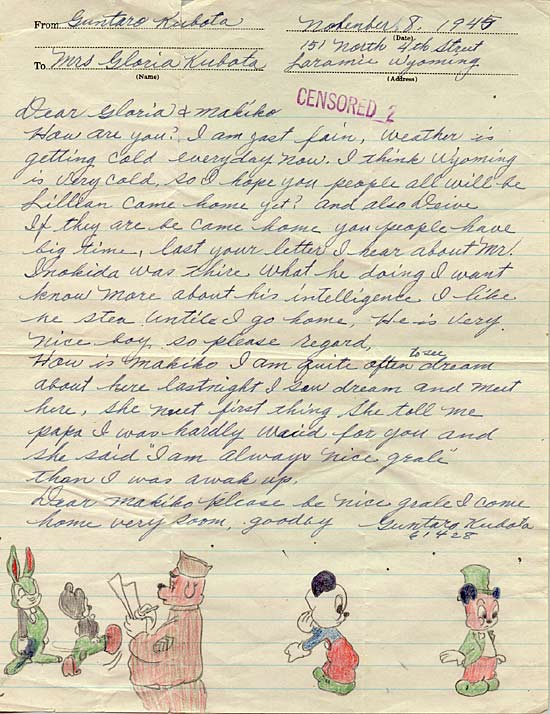 From Guntaro Kubota
November 8, 1945
(Date)
To Mrs Gloria Kubota
(Name)
151 North 4th Street
Laramie Wyoming
(Address)
CENSORED 2
Dear Gloria & Makiko
How are you? I am jast fain, Weather is
getting cold everyday now. I think Wyoming
is very cold, so I hope you people all will be
Lillian came home yet? and also
If they are be came home you people have
big time, last your letter I hear about Mr.
Inokida was thire what he doing I want
know more about his intelligence I like
he stea untile I go home, He is very
nice boy, so please regard,
How is Makiko I am quite often to see dream
about here lastnight I saw dream and meet
here, she meet first thing she told me
papa I was hardly waiid for you and
she said "I am always nice grale"
than I was awak up.
Dear Makiko please be nice grale I come
home very soom, gooday Guntaro Kubota
61428